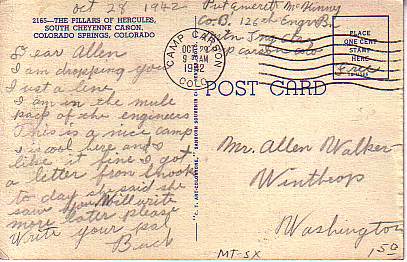 oct 28 1942
2165—THE PILLARS OF HERCULES,
SOUTH CHEYENNE CANON,
COLORADO SPRINGS, COLORADO
Dear Allen
I am dropping you
Just a line
I am in the mule
pack of the engineers
This is a nice camp
I is cool here and I
like it fine I got
a letter from
to day she said she
saw you Will write
more later please
Write your pal
Buck
Pvt Emerett McKinney
Co. B. 126th Engr. Bn
camp carson colo
CAMP CARSON
OCT 29
9 AM
1942
COLO.
PLACE
ONE CENT
STAMP
HERE
Free
POST CARD
Mr. Allen Walker
Winthrop
Washington
MT-SX
1.50